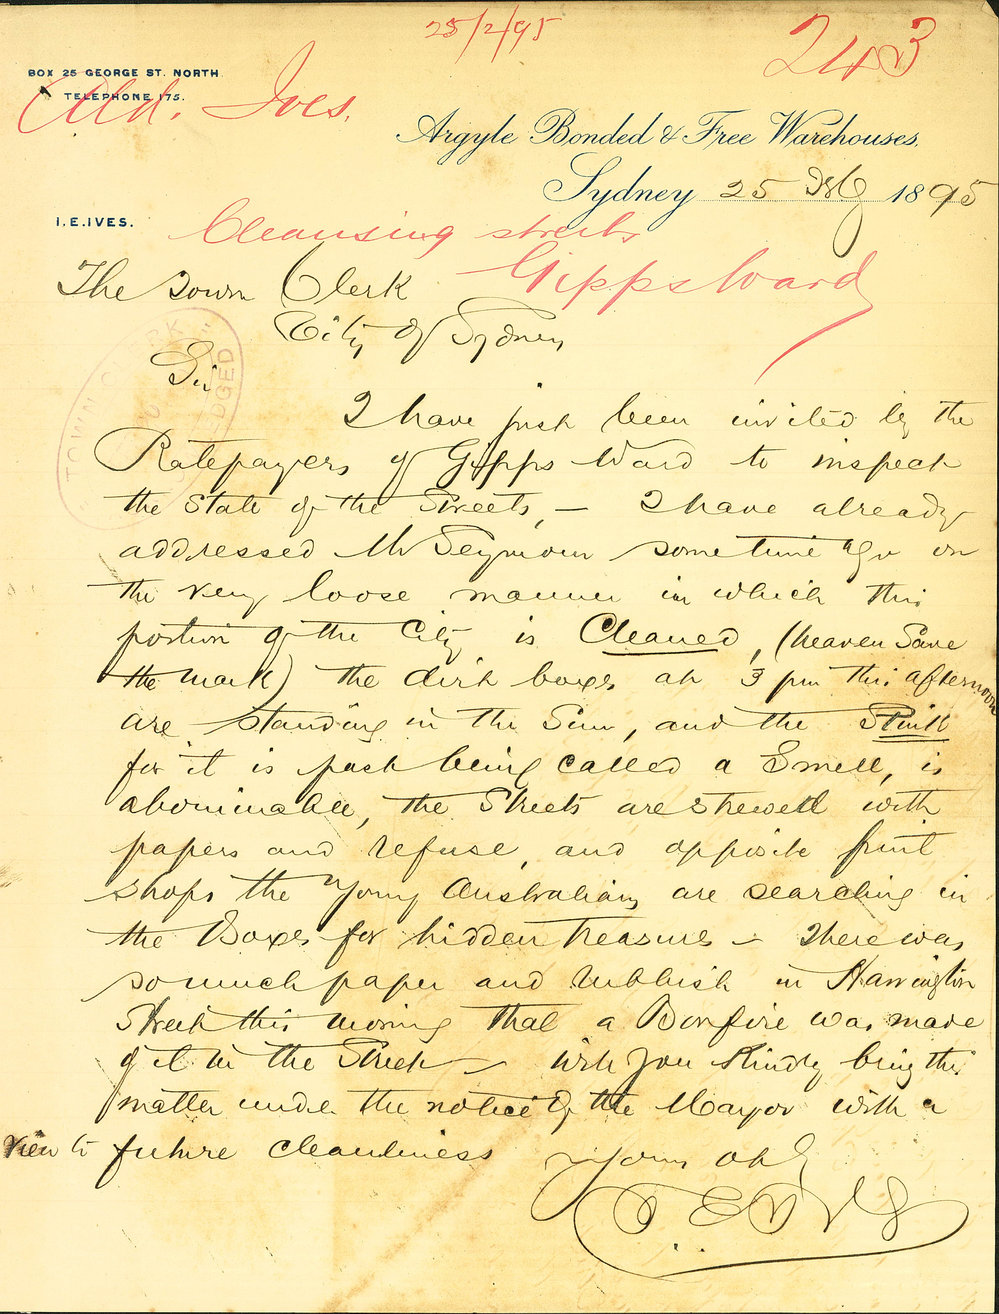 25/2/95
243
BOX 25 GEORGE ST. NORTH.
TELEPHONE 175.
Ald. Ives.
Argyle Bonded & Free Warehouses.
Sydney 25 Feby 1895
I.E.IVES.
Cleansing streets
Gipps Ward
The Town Clerk
City of Sydney
TOWN CLERK
Sir
I have just been invited by the
Ratepayers of Gipps Ward to inspect
the State of the Streets, — I have already
addressed Mr Seymour some time ago on
the very loose manner in which this
portion of the City is Cleaned, (heaven Save
the mark) the dirt boxes at 3 pm this afternoon
are standing in the Sun, and the Stink
for it is past being called a Smell, is
abominable, the Streets are strewed with
papers and refuse, and opposite fruit
shops the Young Australians are searching in
the Boxes for hidden treasures — There was
so much paper and rubbish in Harrington
Street this morning that a Bonfire was made
of it in the Street — Will you Kindly bring this
matter under the notice of the Mayor with a
view to future cleanliness
Yours obdy
I E Ives